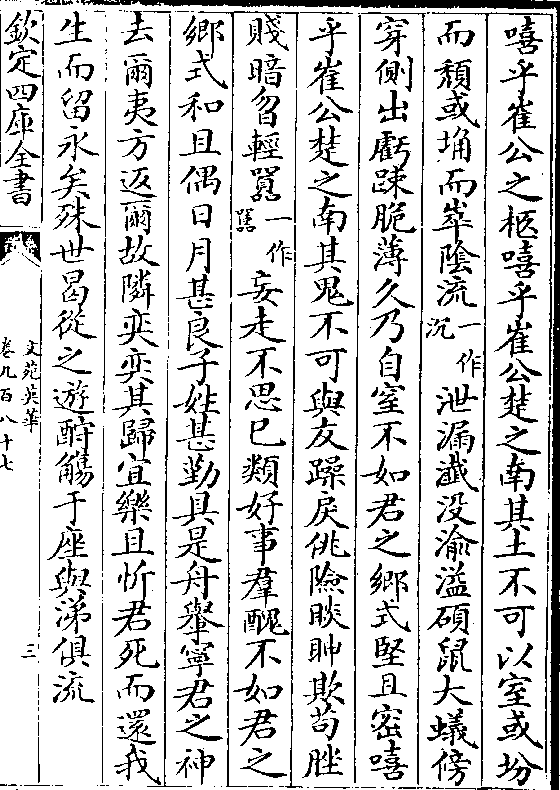 嘻乎崔公之柩嘻乎崔公楚之南其土不可以室或坋
而頽或埇而崒陰流一作沉泄漏瀸没渝溢碩鼠大蟻傍
穿側出虧疎脆薄久乃自窒不如君之鄉式堅且密嘻
乎崔公楚之南其鬼不可與友躁戾佻險睒眒欺苟脞
賤暗曶輕嚚一作嚚妄走不思已類好事羣醜不如君之
鄉式和且偶日月甚良子姓甚勤具是舟轝寧君之神
去爾夷方返爾故隣奕奕其歸宜樂且忻君死而還我
生而留永矣殊世曷從之遊酹觴于座與涕俱流
欽定四庫全書
文苑英華
卷九百八十七
三